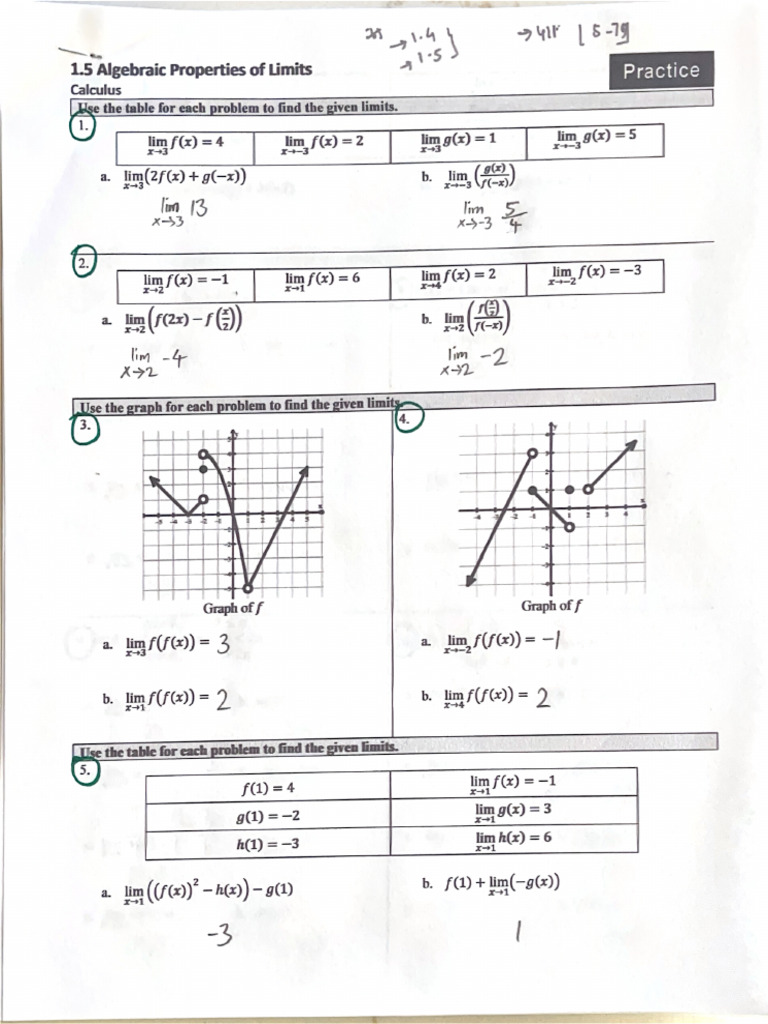 → 1.4
→ 1.5
1.5 Algebraic Properties of Limits
Practice
Calculus
Use the table for each problem to find the given limits.
1.
lim x→3 f(x) = 4 lim x→−3 f(x) = 2 lim x→3 g(x) = 1 lim x→−3 g(x) = 5
a. lim x→3 (2f(x) + g(−x)) b. lim x→−3 (g(x)/f(−x))
lim x→3 13 lim x→-3 5/4
2.
lim x→2 f(x) = −1 lim x→1 f(x) = 6 lim x→4 f(x) = 2 lim x→−2 f(x) = −3
a. lim x→2 (f(2x) − f(x/2)) b. lim x→2 (f(x/2)/f(−x))
lim x→2 -4 lim x→2 -2
Use the graph for each problem to find the given limits.
3. 4.
Graph of f Graph of f
a. lim x→3 f(f(x)) = 3 a. lim x→−2 f(f(x)) = -1
b. lim x→1 f(f(x)) = 2 b. lim x→4 f(f(x)) = 2
Use the table for each problem to find the given limits.
5.
f(1) = 4 lim x→1 f(x) = −1
g(1) = −2 lim x→1 g(x) = 3
h(1) = −3 lim x→1 h(x) = 6
a. lim x→1 ((f(x))² − h(x)) − g(1) b. f(1) + lim x→1 (−g(x))
-3 1